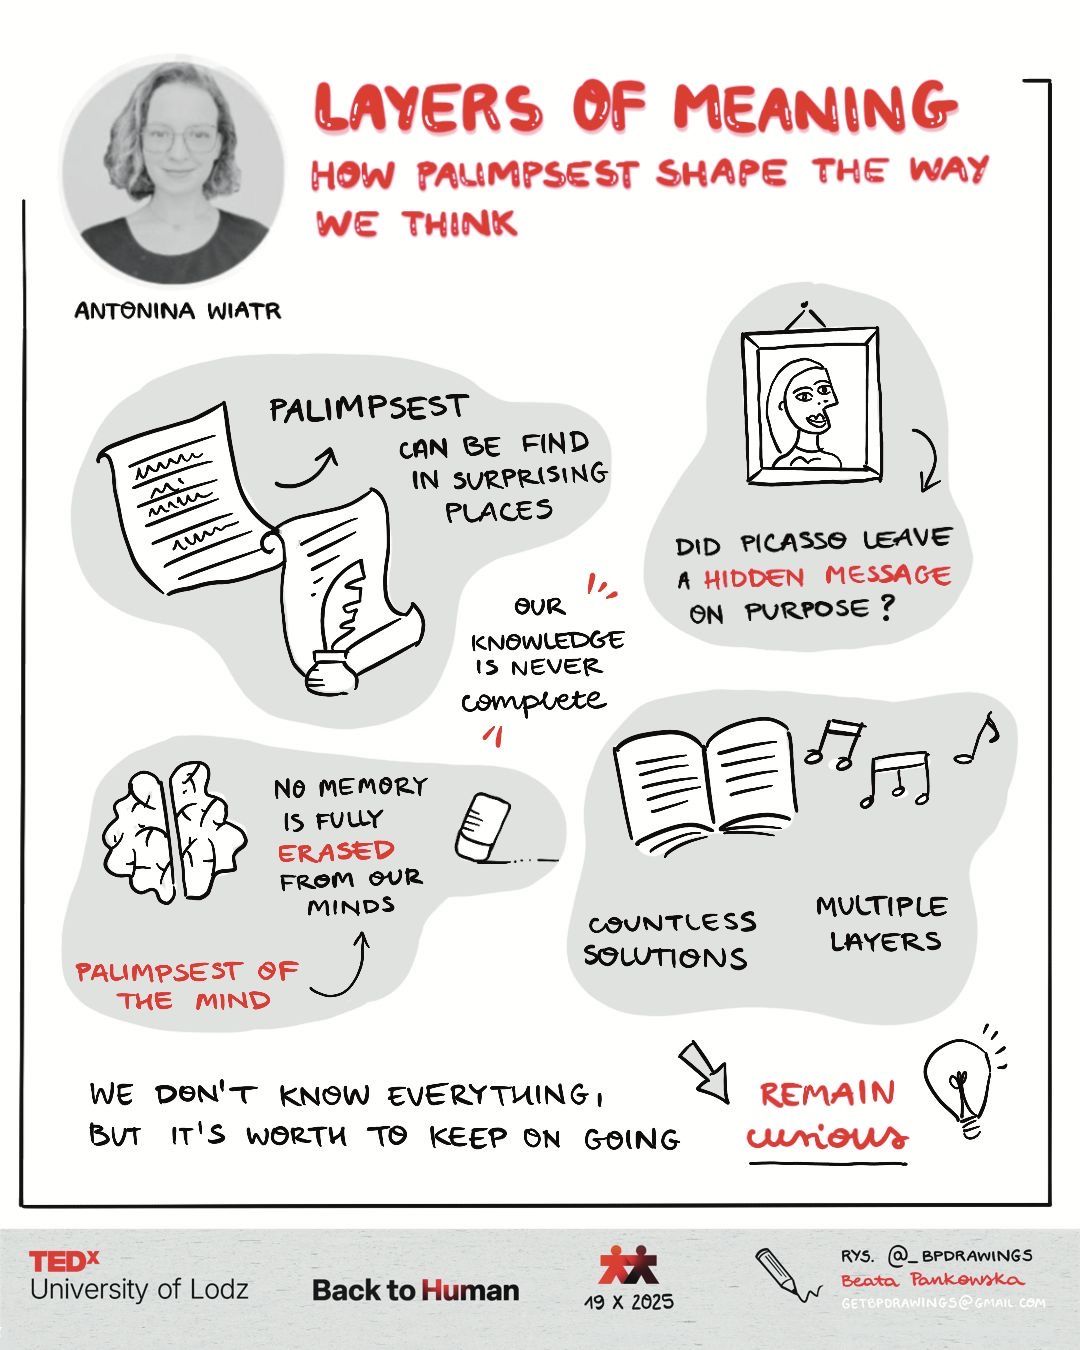 LAYERS OF MEANING
HOW PALIMPSEST SHAPE THE WAY
WE THINK
ANTONINA WIATR
PALIMPSEST
CAN BE FIND
IN SURPRISING
PLACES
DID PICASSO LEAVE
A HIDDEN MESSAGE
ON PURPOSE?
OUR
KNOWLEDGE
IS NEVER
complete
NO MEMORY
IS FULLY
ERASED
FROM OUR
MINDS
PALIMPSEST OF
THE MIND
COUNTLESS
SOLUTIONS
MULTIPLE
LAYERS
WE DON'T KNOW EVERYTHING,
BUT IT'S WORTH TO KEEP ON GOING
REMAIN
curious
TEDx
University of Lodz
Back to Human
19 X 2025
RYS. @_BPDRAWINGS
Beata Pankowska
GETBPDRAWINGS@GMAIL.COM